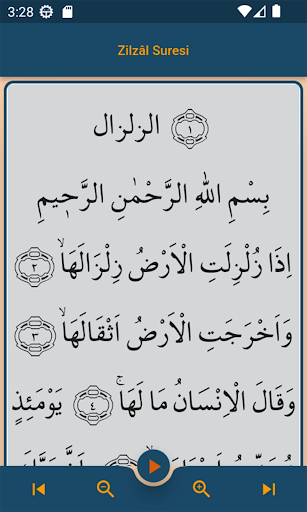 3:28
Zilzâl Suresi
الزلزال ﴿١﴾
بِسْمِ اللّٰهِ الرَّحْمٰنِ الرَّح۪يمِ
اِذَا زُلْزِلَتِ الْاَرْضُ زِلْزَالَهَاۙ ﴿٢﴾
وَاَخْرَجَتِ الْاَرْضُ اَثْقَالَهَاۙ ﴿٣﴾
وَقَالَ الْاِنْسَانُ مَا لَهَاۚ ﴿٤﴾ يَوْمَئِذٍ